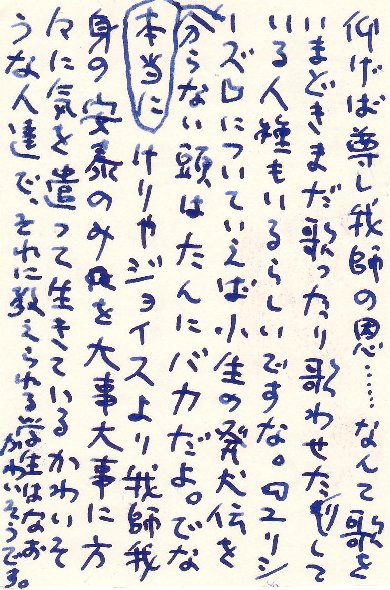 仰げば尊し我師の恩……なんて歌を
いまどきまだ歌ったり歌わせたりして
いる人種もいるらしいですな。『ユリシ
ーズ』についていえば小生の発犬伝を
分からない頭はたんにバカだよ。でな
本当にけりゃジョイスより我師我
身の安泰のみを大事大事に方
々に気を遣って生きているかわいそ
うな人達で、それに教えられる学生はなお
かわいそうです。